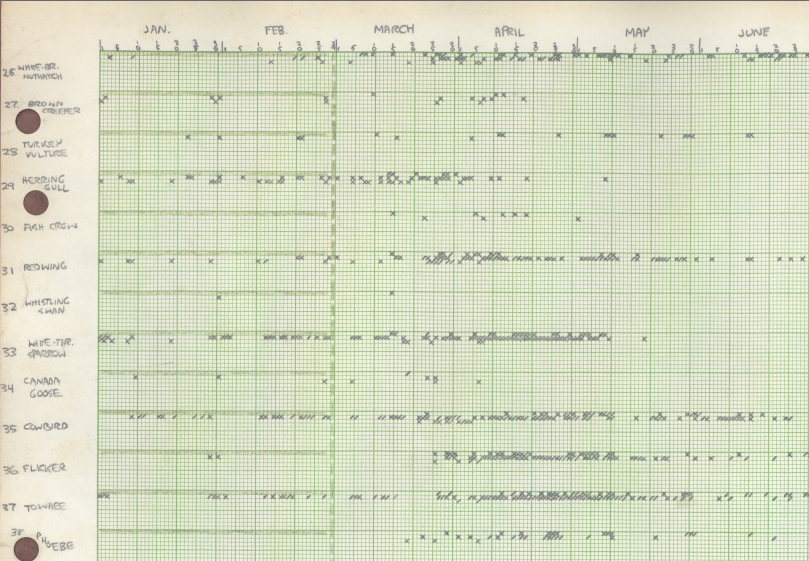 JAN. FEB. MARCH APRIL MAY JUNE
26 WHITE-BR.
NUTHATCH
27. BROWN
CREEPER
28 TURKEY
VULTURE
29 HERRING
GULL
30 FISH CROW
31 REDWING
32 WHISTLING
SWAN
33 WHITE-THR.
SPARROW
34 CANADA
GOOSE
35 COWBIRD
36 FLICKER
37 TOWHEE
38 PHOEBE